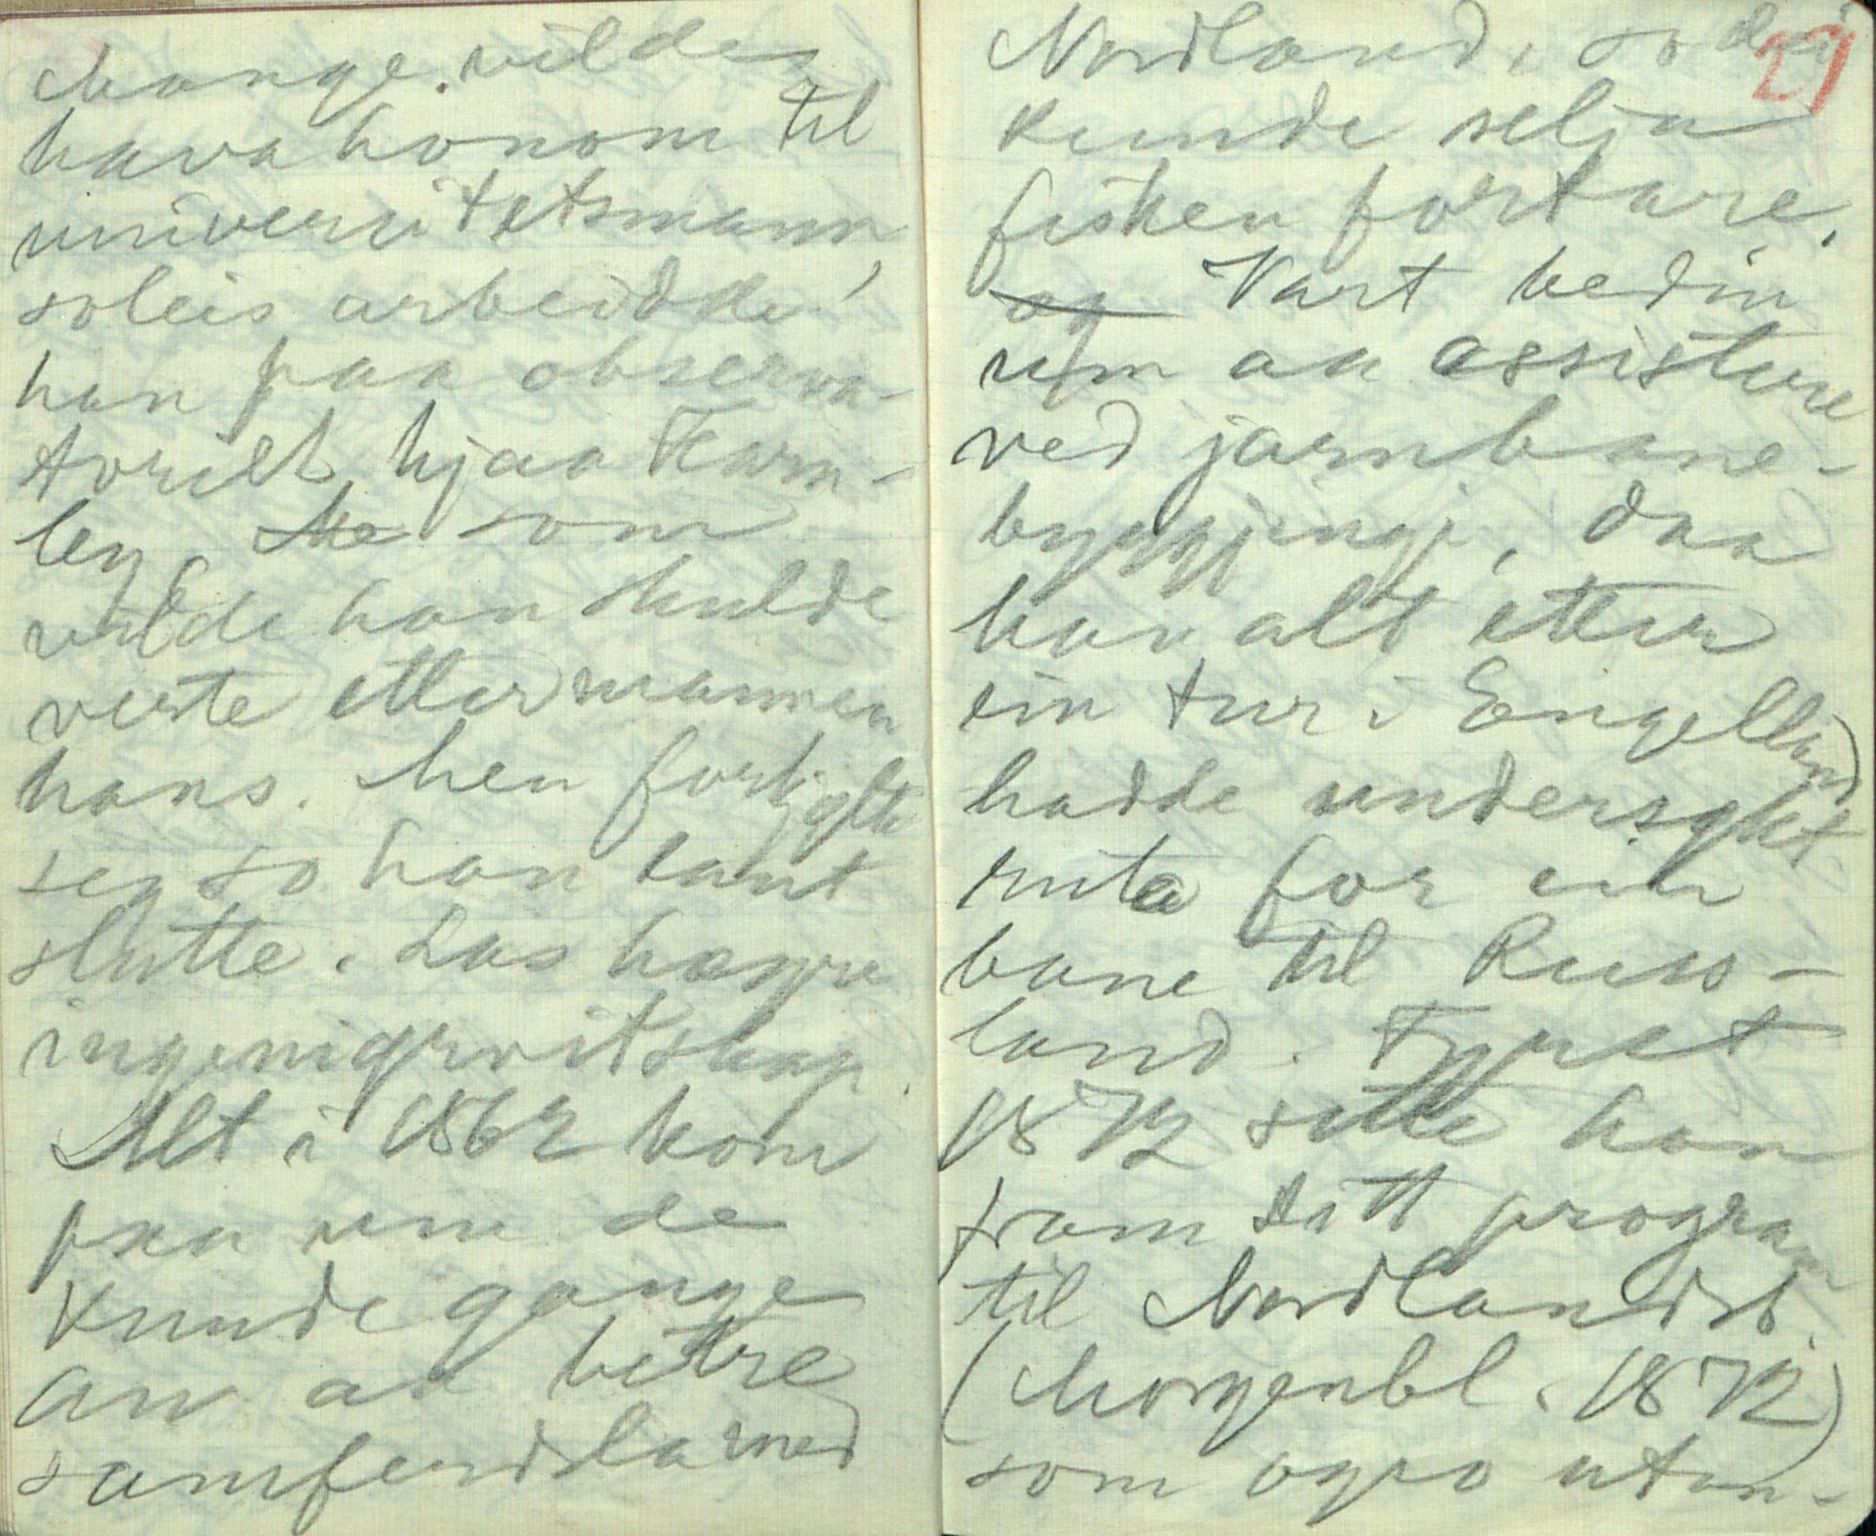 Mange vilde
hava honom til
universitetsmann,
soleis arbeidde
han paa observa-
toriet hjaa Fearn-
ley, som
vilde han skulde
verte ettermannen
hans. Men
seg so han laut
slutte. Las høgre
ingeniørvitskap.
Alt i 1862 kom
paa um de
kunde gange
an aa betre
samferdsla med
Nordland, so dei
27
kunde selja
fisken fortare.
og Vart bedin
um aa assistere
ved jarnbane-
byggjingi, daa
han alt etter
ein tur i Engelland
hadde undersøkt
ruta for ein
bane til Russ-
land. Fyrst
1872 sette han
fram sitt program
til Nordlandsb.
(Morgenbl. 1872)
som ogso utan-